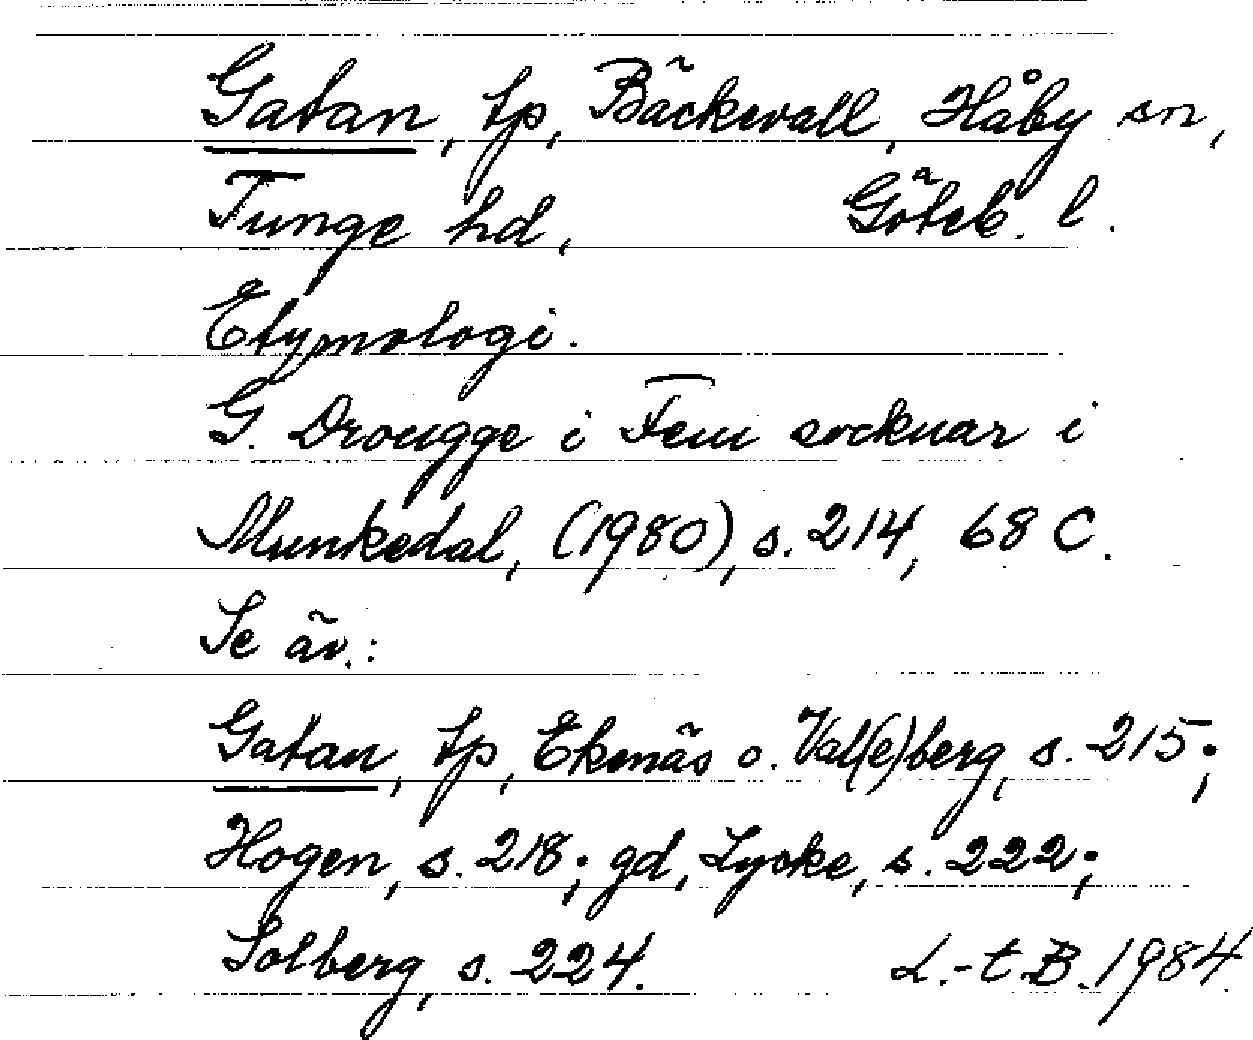 Gatan, tp, Bäckevall, Håby sn,
Tunge hd, Göteb. l.
Etymologi.
G. Drougge i Fem socknar i
Munkedal, (1980), s. 214, 68 C.
Se äv.:
Gatan, tp, Ekenäs o. Val(e)berg, s. 215;
Hogen, s. 218; gd, Lycke, s. 222;
Solberg, s. 224. L.-t B. 1984.